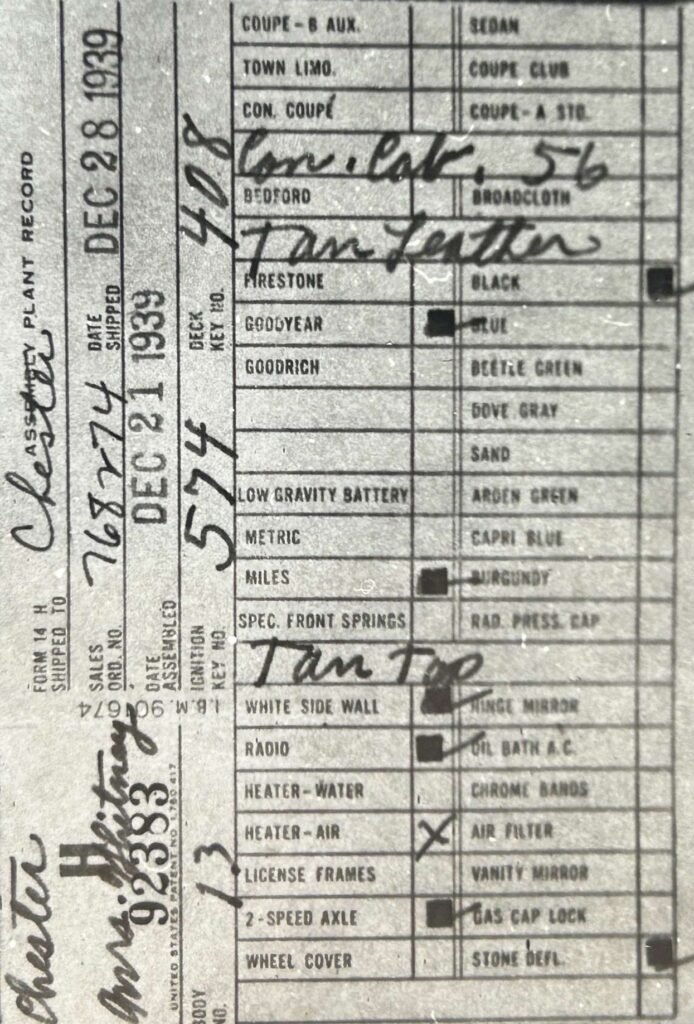 FORM 14 H ASSEMBLY PLANT RECORD
SHIPPED TO Chester
SALES ORD. NO. 768274 DATE SHIPPED DEC 28 1939
DATE ASSEMBLED DEC 21 1939
IGNITION KEY NO. 574 DECK KEY NO. 408
I.B.M. 901674
Chester
Mrs. Whitney
H
92383
UNITED STATES PATENT NO. 1,780,417
BODY NO. 13
COUPE-B AUX. SEDAN
TOWN LIMO. COUPE CLUB
CON. COUPE COUPE-A STD.
Con. Cab. 56
BEDFORD BROADCLOTH
Tan Leather
FIRESTONE BLACK
GOODYEAR BLUE
GOODRICH BEETLE GREEN
DOVE GRAY
SAND
LOW GRAVITY BATTERY ARDEN GREEN
METRIC CAPRI BLUE
MILES BURGUNDY
SPEC. FRONT SPRINGS RAD. PRESS. CAP
Tan Top
WHITE SIDE WALL HINGE MIRROR
RADIO OIL BATH A.C.
HEATER-WATER CHROME BANDS
HEATER-AIR X AIR FILTER
LICENSE FRAMES VANITY MIRROR
2-SPEED AXLE GAS CAP LOCK
WHEEL COVER STONE DEFL.